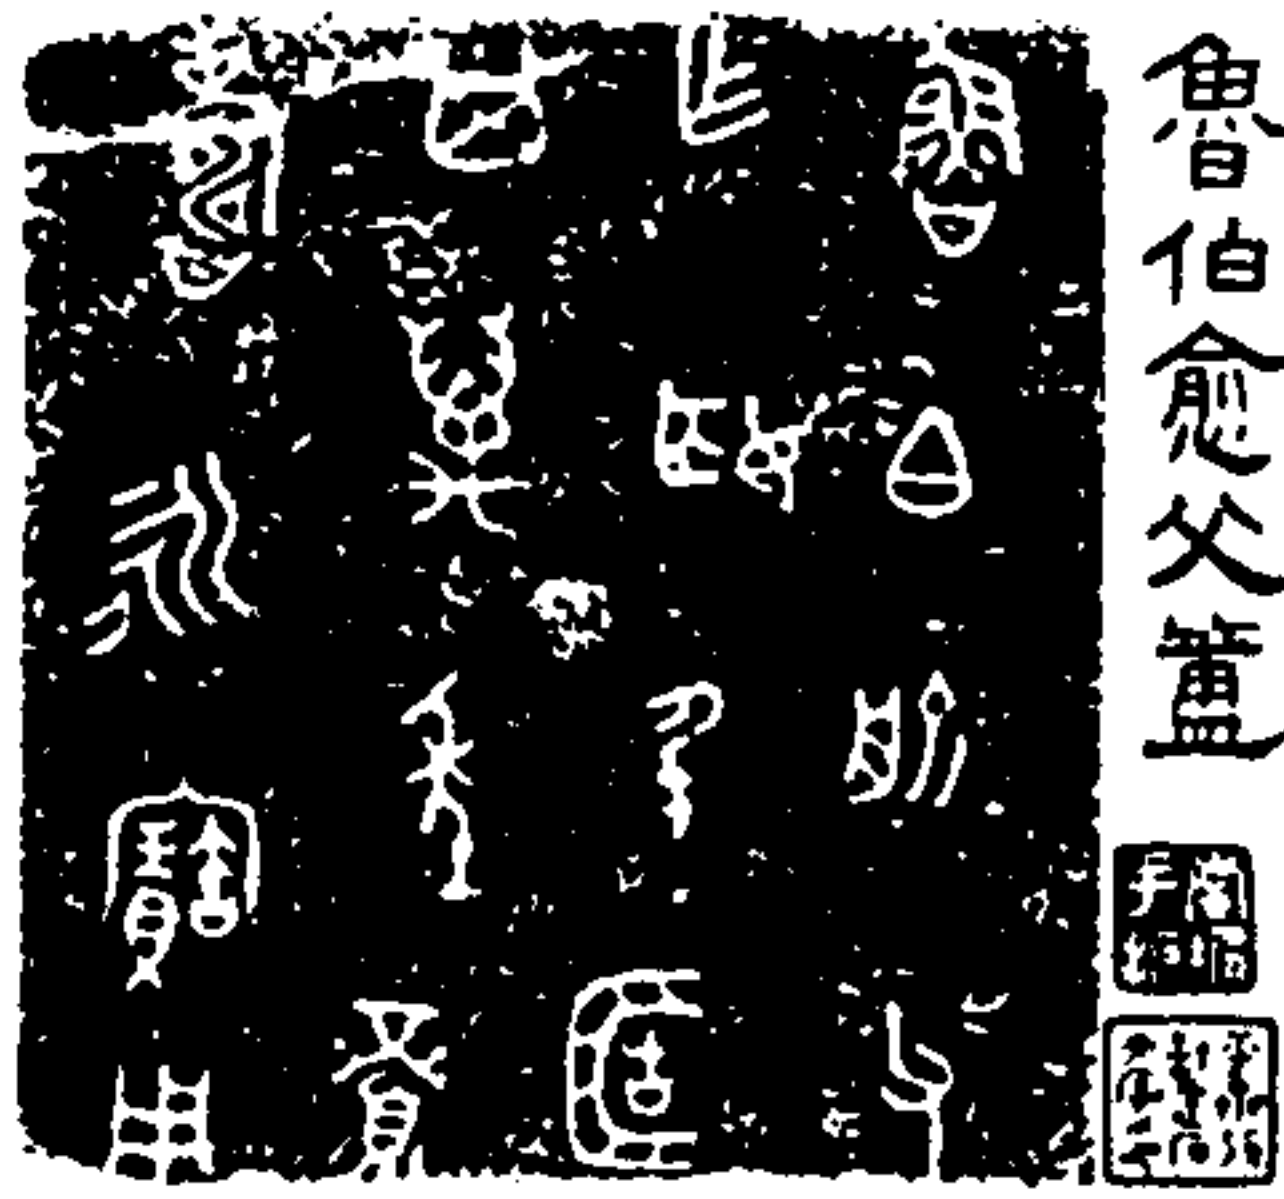 魯伯愈父簠
魯白愈父
乍姬仁𠤳
其萬年眉
壽永寶用